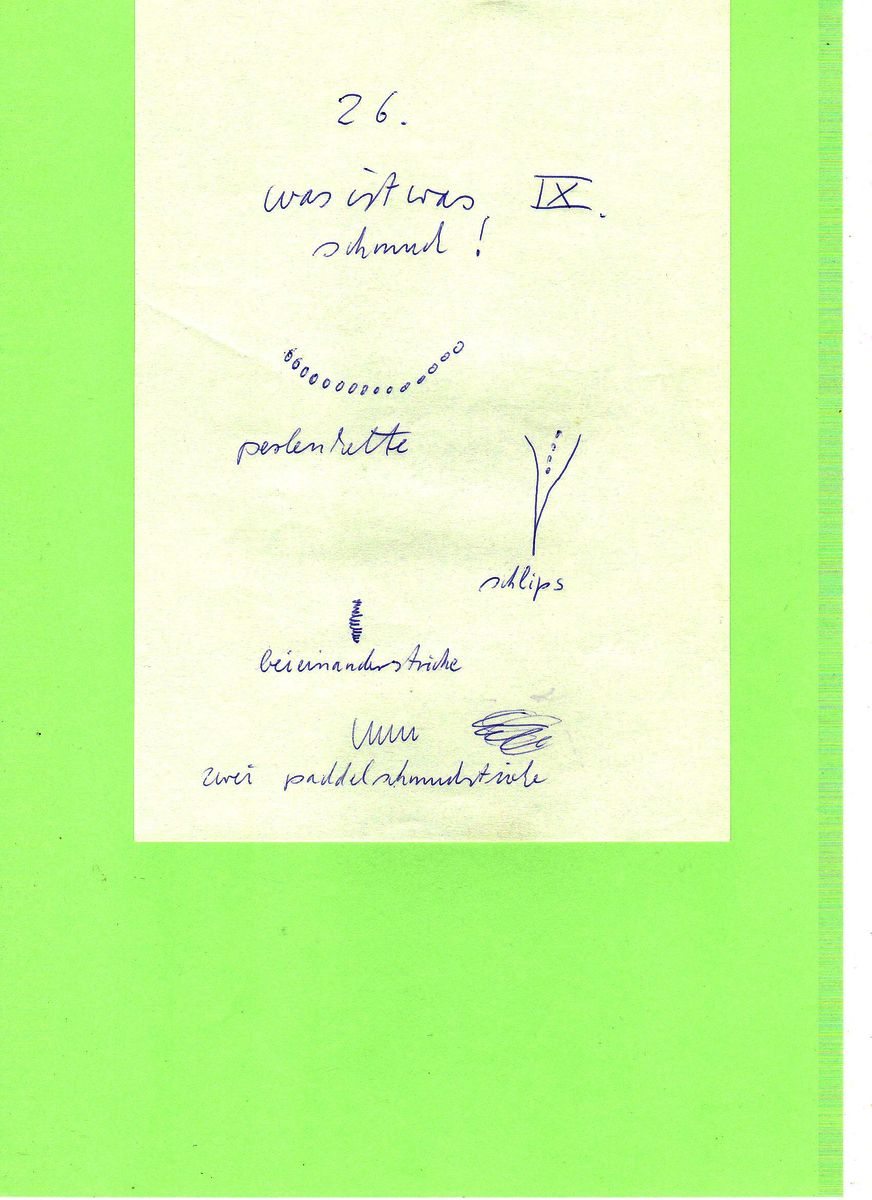 26.
was ist was, IX.
schmuck!
perlenkette
schlips
beieinanderstriche
zwei paddelschmuckstriche